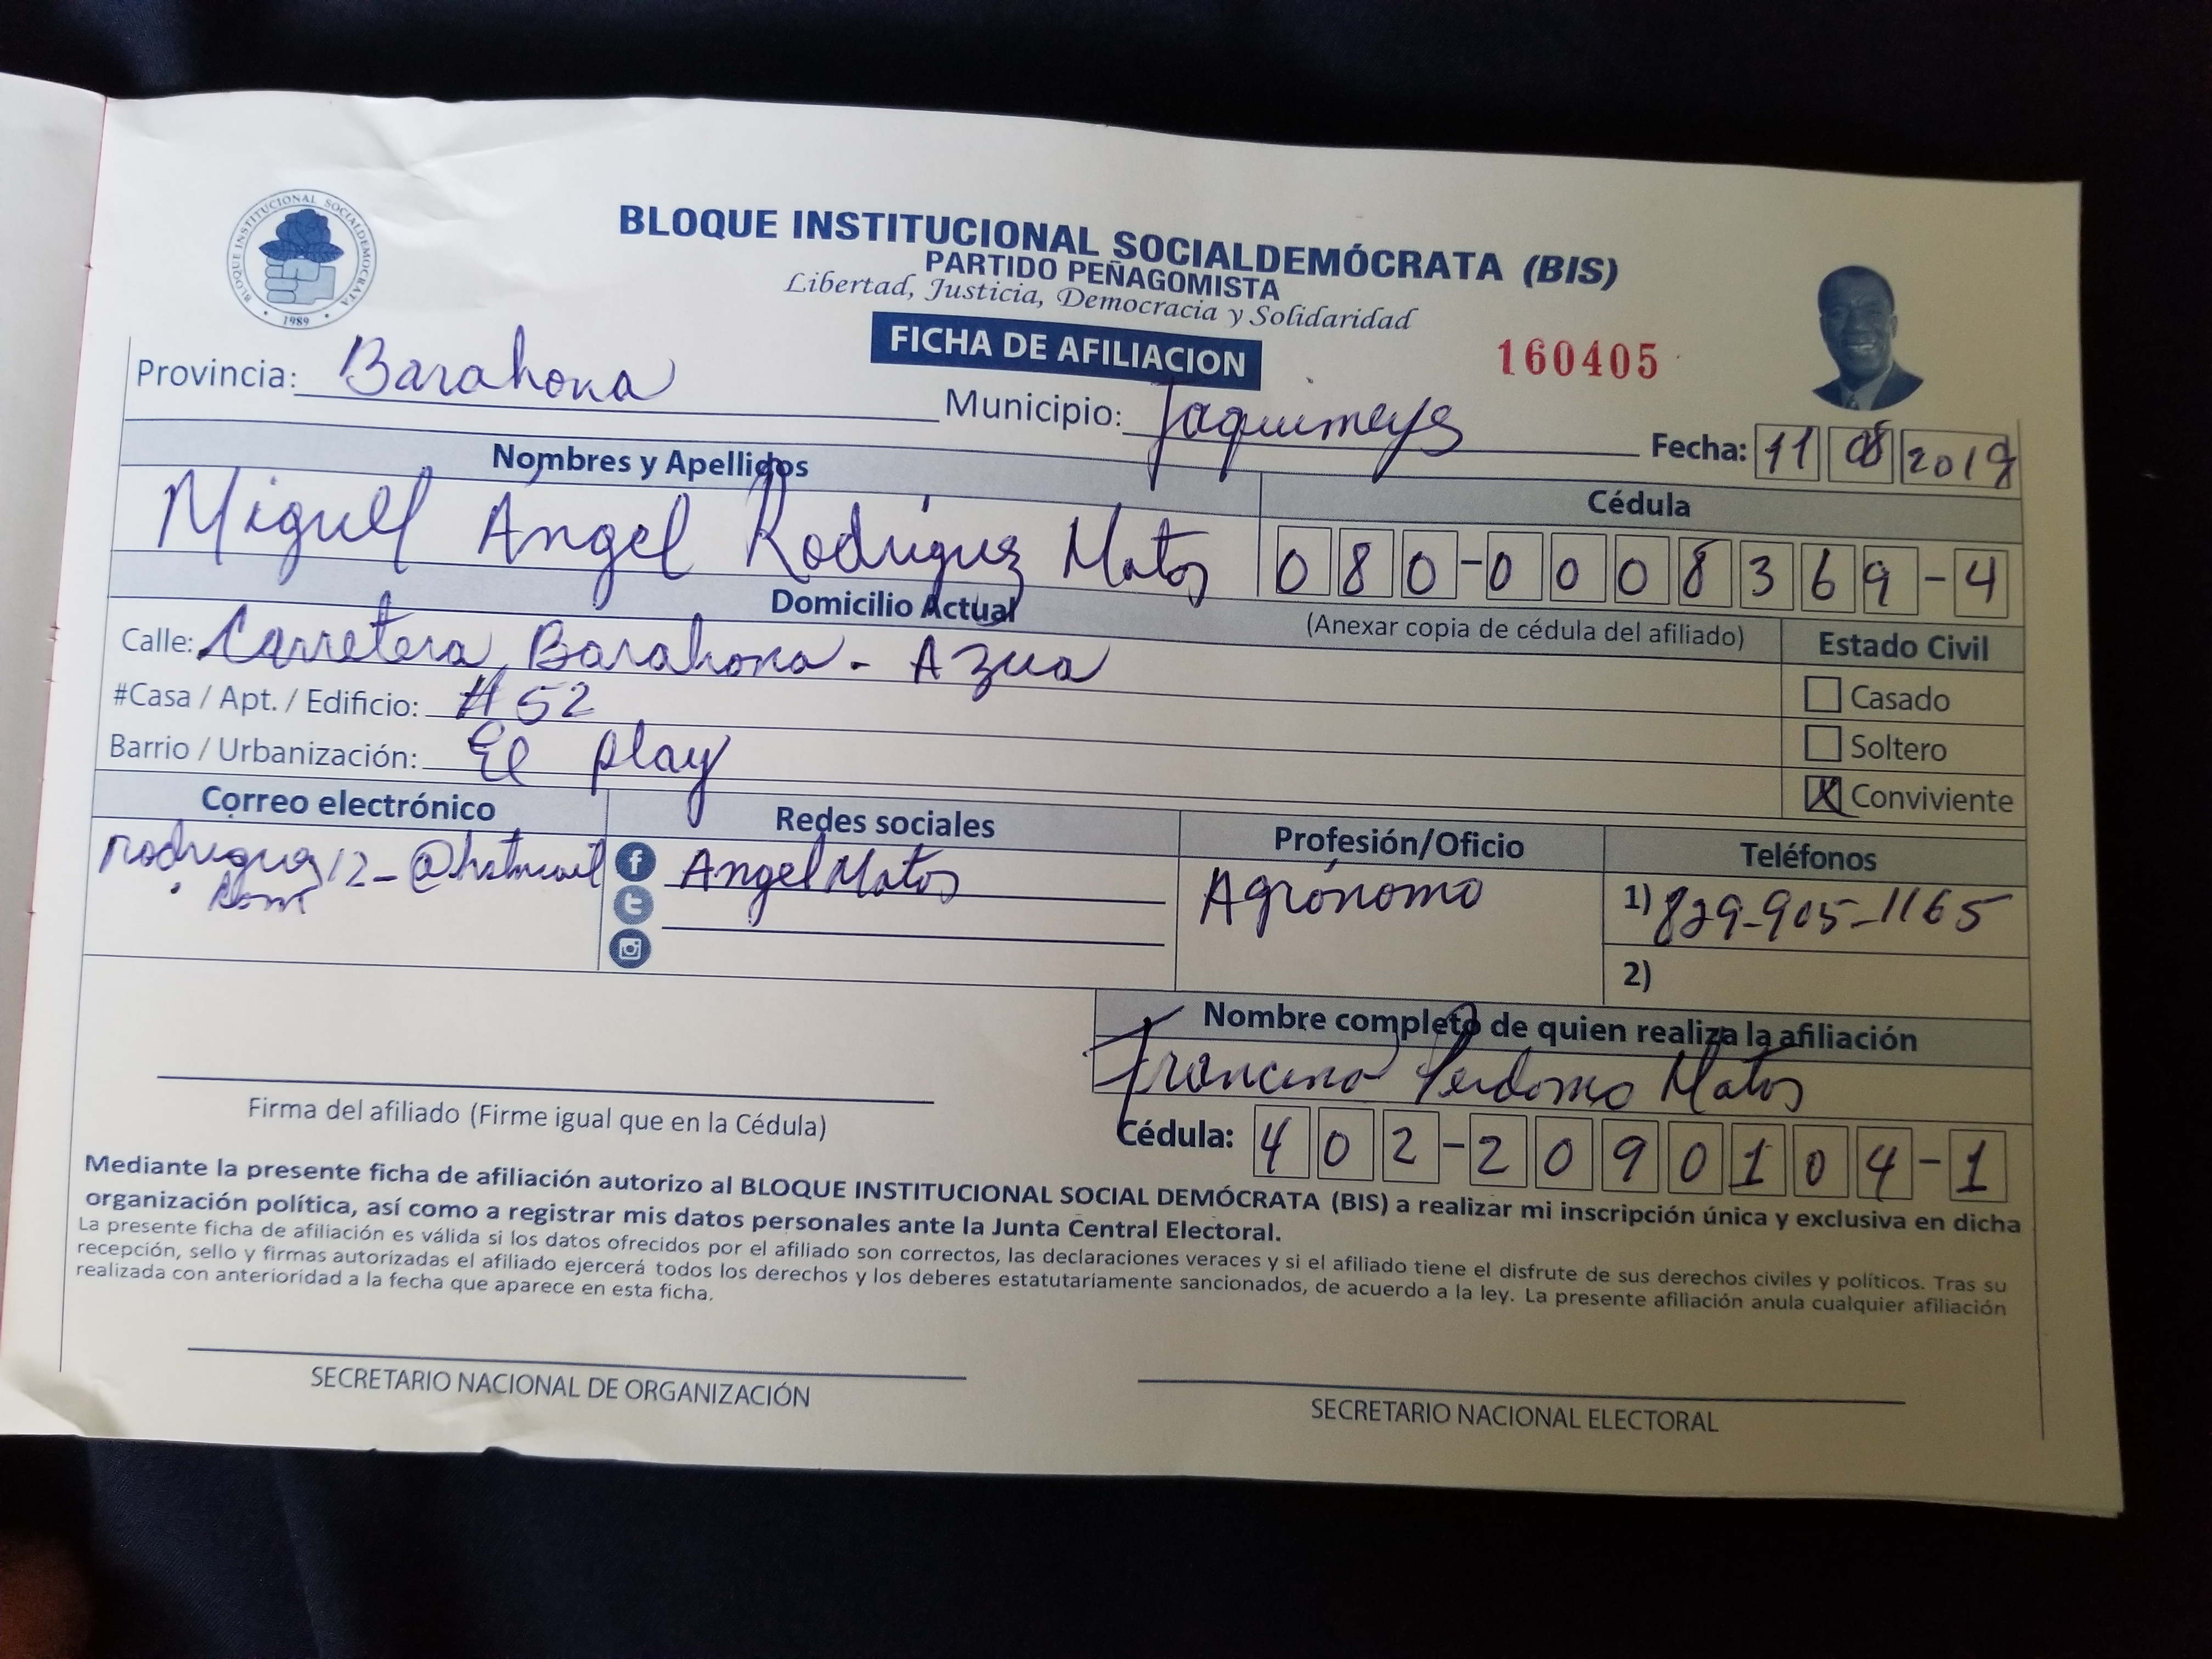 BLOQUE INSTITUCIONAL SOCIALDEMÓCRATA
1989
BLOQUE INSTITUCIONAL SOCIALDEMÓCRATA (BIS)
PARTIDO PEÑAGOMISTA
Libertad, Justicia, Democracia y Solidaridad
FICHA DE AFILIACION
160405
Provincia: Barahona Municipio: Jaquimeys Fecha: 11 08 2019
Nombres y Apellidos
Cédula
Miguel Ángel Rodríguez Matos 080-0008369-4
Domicilio Actual
(Anexar copia de cédula del afiliado)
Estado Civil
Calle: Carretera Barahona - Azua
#Casa / Apt. / Edificio: #52
Barrio / Urbanización: El play
Casado
Soltero
X Conviviente
Correo electrónico
Redes sociales
Profesión/Oficio
Teléfonos
rodriguez12_@hotmail
.com
f Angel Matos
Agrónomo
1) 829-905-1165
2)
Nombre completo de quien realiza la afiliación
Perdomo Matos
Firma del afiliado (Firme igual que en la Cédula)
Cédula: 402-2090104-1
Mediante la presente ficha de afiliación autorizo al BLOQUE INSTITUCIONAL SOCIAL DEMÓCRATA (BIS) a realizar mi inscripción única y exclusiva en dicha
organización política, así como a registrar mis datos personales ante la Junta Central Electoral.
La presente ficha de afiliación es válida si los datos ofrecidos por el afiliado son correctos, las declaraciones veraces y si el afiliado tiene el disfrute de sus derechos civiles y políticos. Tras su
recepción, sello y firmas autorizadas el afiliado ejercerá todos los derechos y los deberes estatutariamente sancionados, de acuerdo a la ley. La presente afiliación anula cualquier afiliación
realizada con anterioridad a la fecha que aparece en esta ficha.
SECRETARIO NACIONAL DE ORGANIZACIÓN
SECRETARIO NACIONAL ELECTORAL